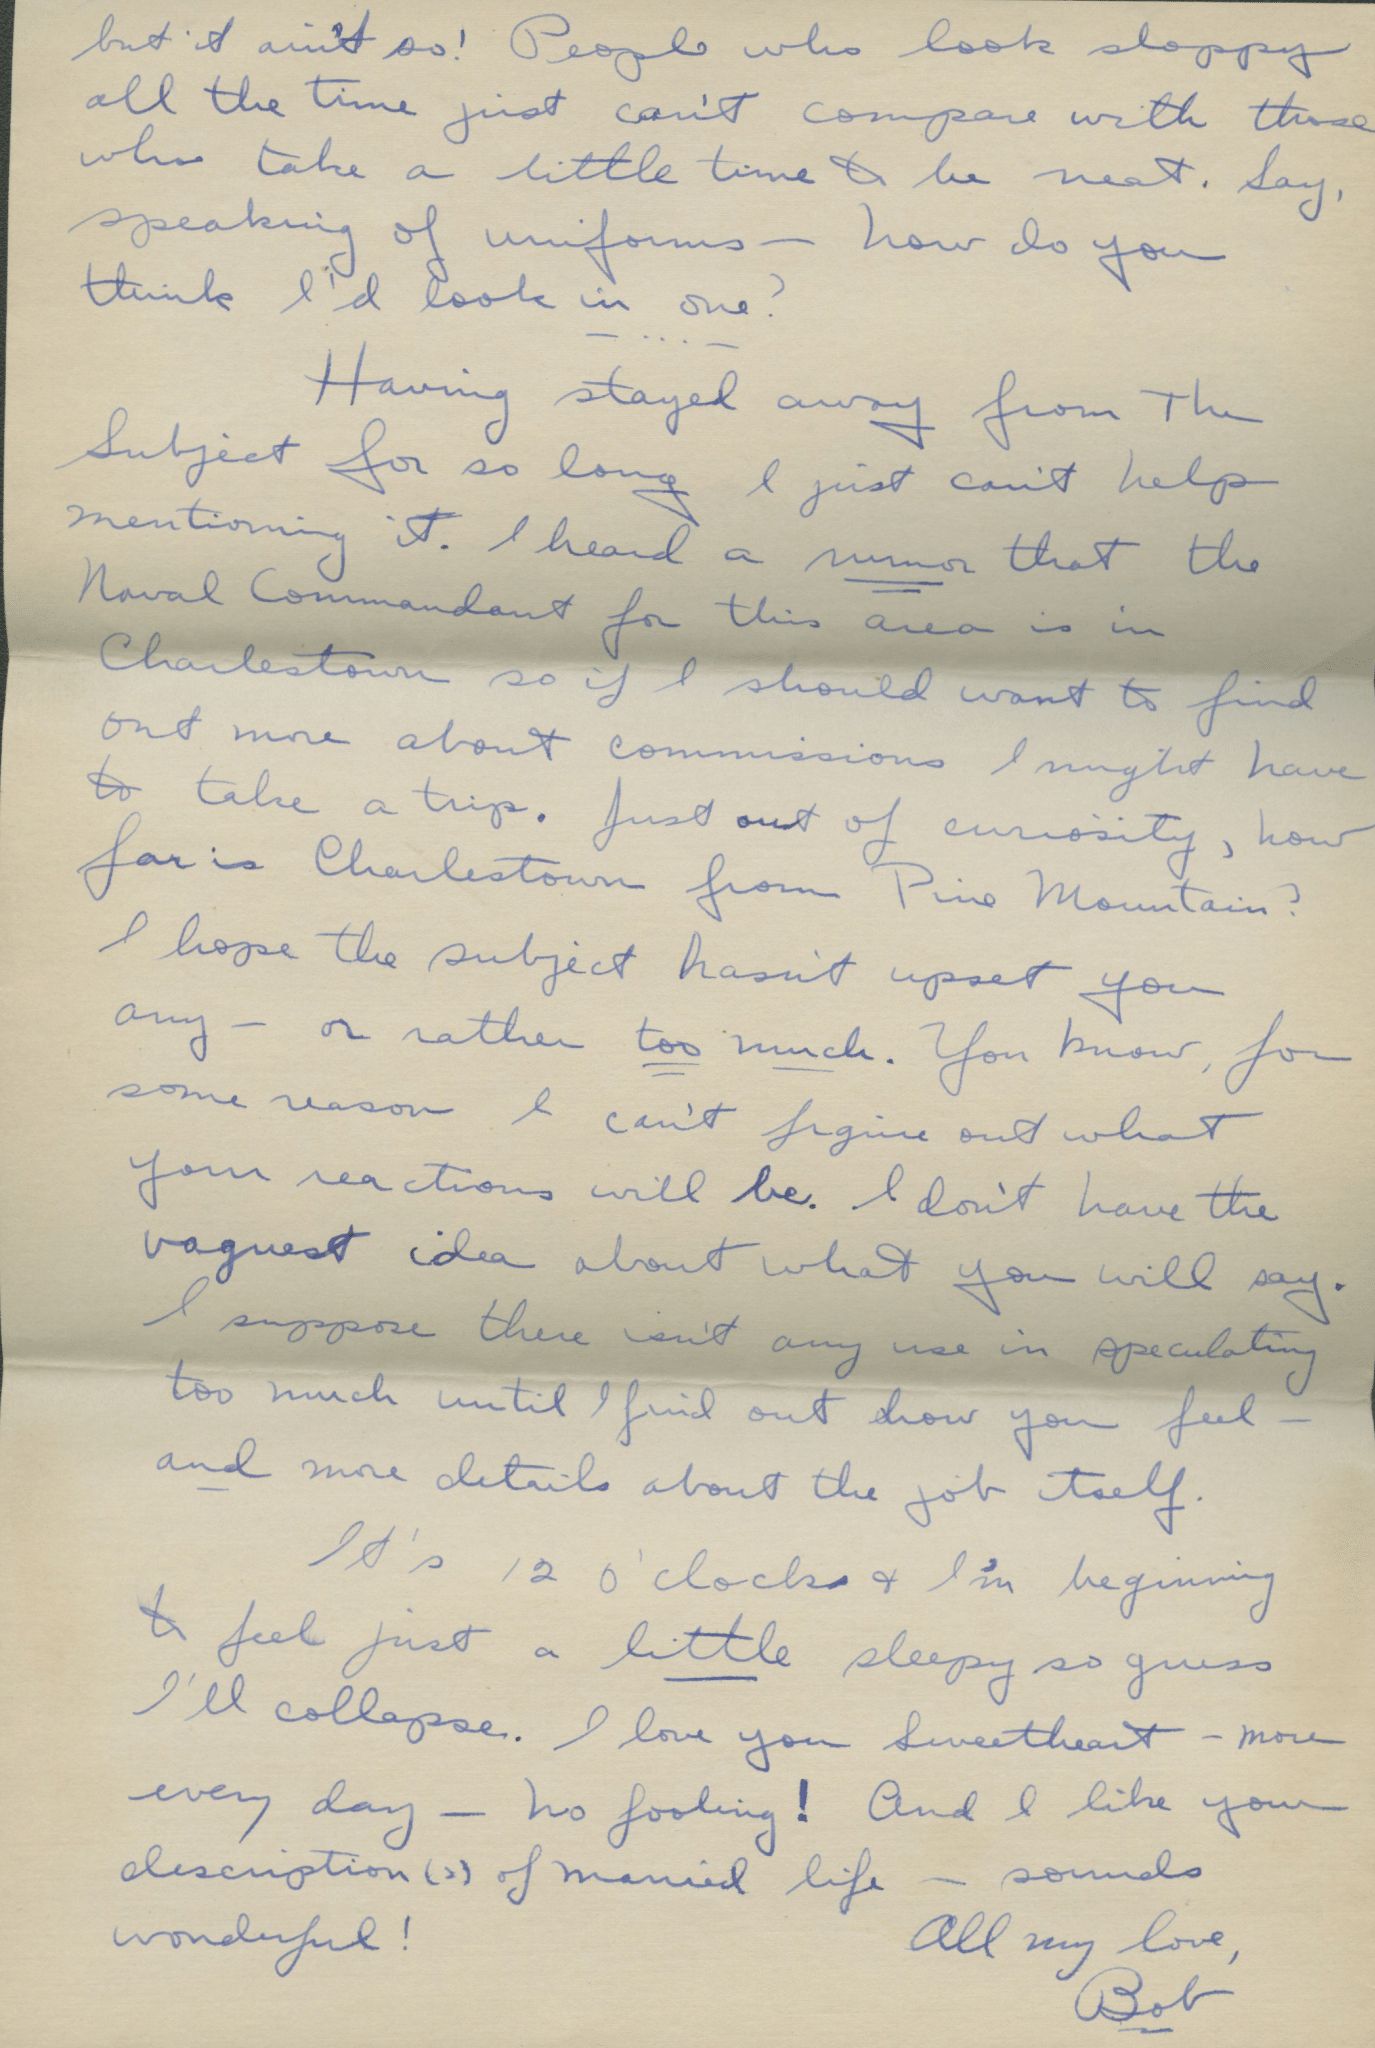 but it ain't so! People who look sloppy
all the time just can't compare with those
who take a little time to be neat. Say,
speaking of uniforms — how do you
think I'd look in one?
— . . . —
Having stayed away from The
Subject for so long I just can't help
mentioning it. I heard a rumor that the
Naval Commandant for this area is in
Charlestown so if I should want to find
out more about commissions I might have
to take a trip. Just out of curiosity, how
far is Charlestown from Pine Mountain?
I hope the subject hasn't upset you
any — or rather too much. You know, for
some reason I can't figure out what
your reactions will be. I don't have the
vaguest idea about what you will say.
I suppose there isn't any use in speculating
too much until I find out how you feel —
and more details about the job itself.
It's 12 o'clock & I'm beginning
to feel just a little sleepy so guess
I'll collapse. I love you Sweetheart — more
every day — no fooling! And I like your
description(s) of married life — sounds
wonderful!
All my love,
Bob